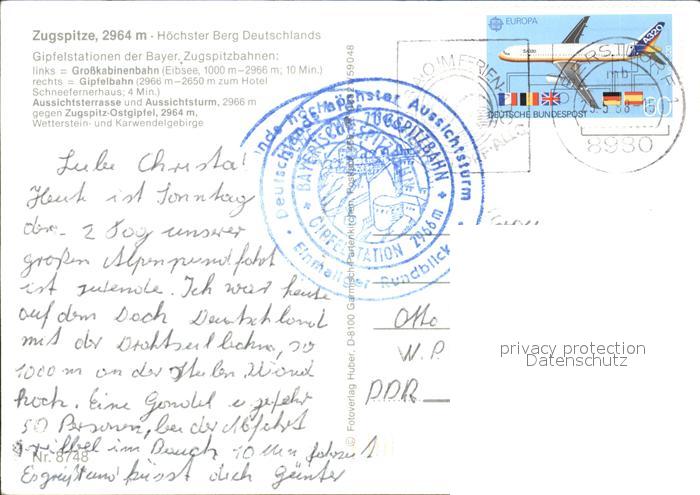 Zugspitze, 2964 m - Höchster Berg Deutschlands
Gipfelstationen der Bayer. Zugspitzbahnen:
links = Großkabinenbahn (Eibsee, 1000 m–2966 m; 10 Min.)
rechts = Gipfelbahn (2966 m–2650 m zum Hotel
Schneefernerhaus; 4 Min.)
Aussichtsterrasse und Aussichtsturm, 2966 m
gegen Zugspitz-Ostgipfel, 2964 m,
Wetterstein- und Karwendelgebirge
EUROPA
A320
DEUTSCHE BUNDESPOST
60
8980
Deutschlands höchster Aussichtsturm
BAYER. ZUGSPITZBAHN
GIPFELSTATION 2966 m
Einmaliger Rundblick
Liebe Christa!
Heute ist Sonntag
der 2 Tag unserer
großen Alpenrundfahrt
ist zuende. Ich war heute
auf dem Dach Deutschland
mit der Drahtseilbahn, so
1000 m an der steilen Wand
hoch. Eine Gondel
50 Personen, bei der Abfahrt
im Bauch 10 Min
Es grüßt und küsst dich Günter
Nr. 8748
© Fotoverlag Huber, D-8100 Garmisch-Partenkirchen,
Otto
W. P.
DDR
privacy protection
Datenschutz